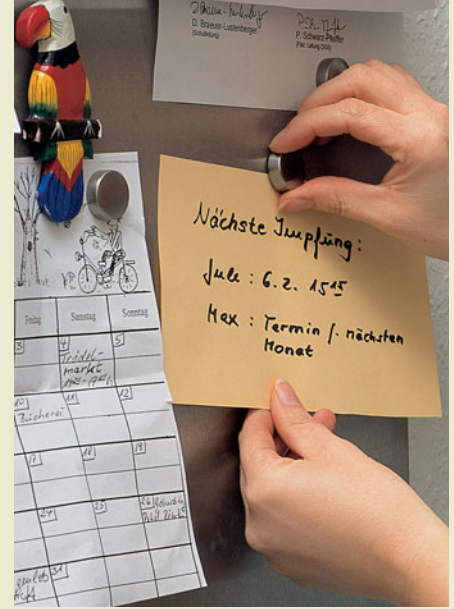 D. Braeuer-Lustenberger
(Schulleitung)
P. Schwarz-Pfeiffer
Nächste Impfung:
Jule : 6.2. 15 15
Max : Termin f. nächsten
Monat
Freitag
Samstag
Sonntag
3
4
5
Trödel-
markt
10
11
12
Bücherei
17
18
19
24
25
26
31